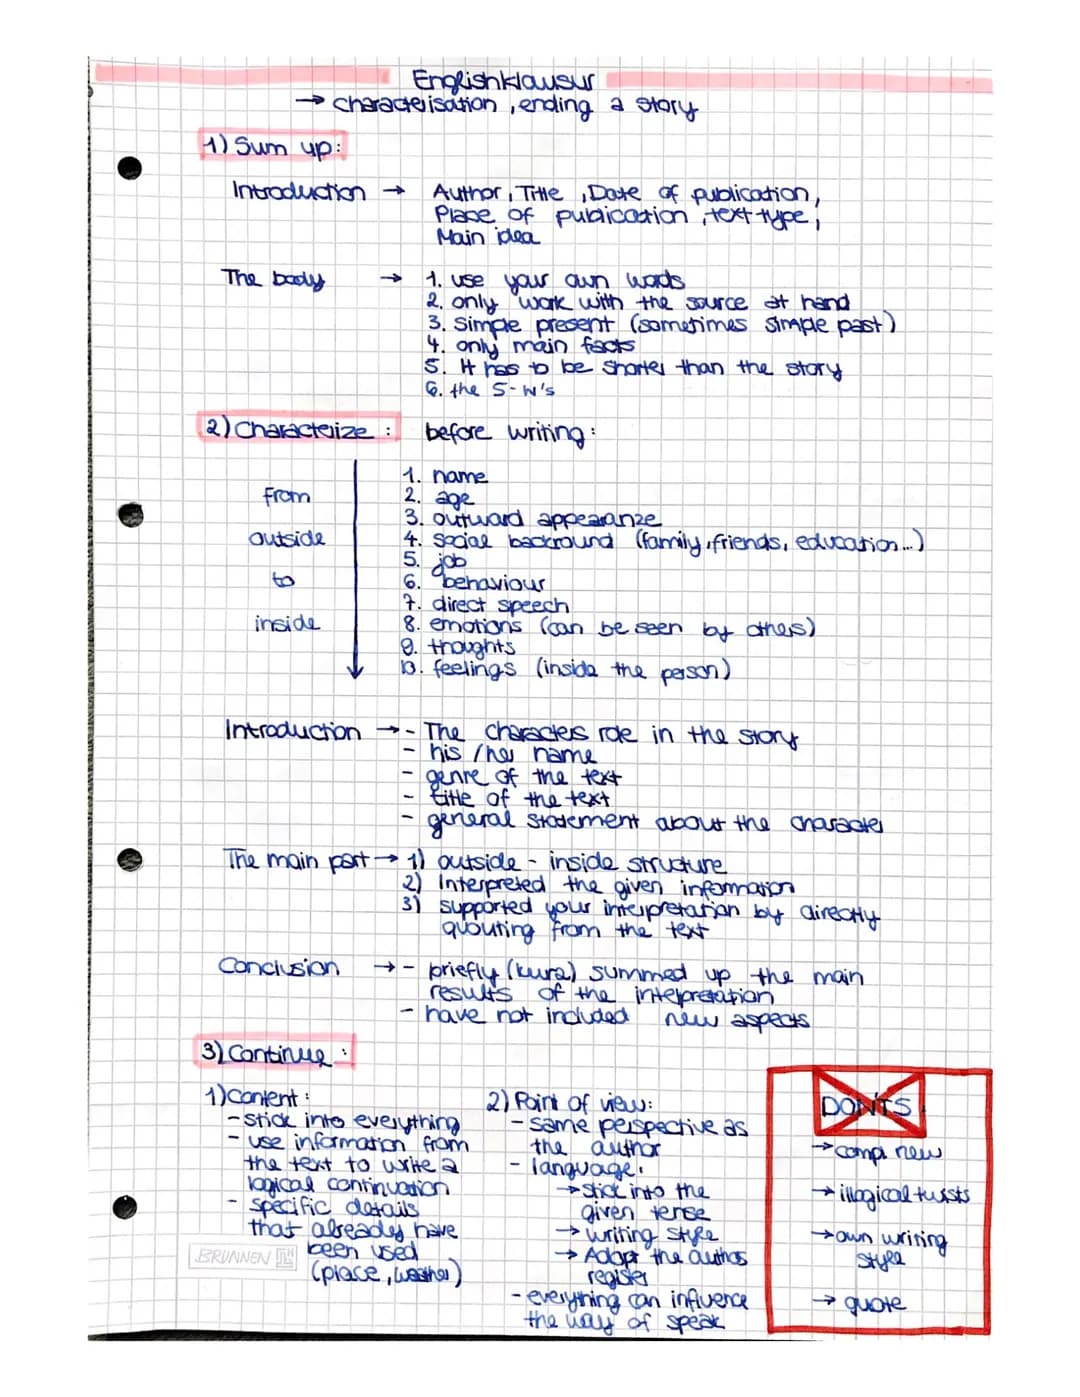 Englishklausur
→ characterisation, ending a story
1) Sum up:
Introduction → Author, Title, Date of publication,
Place of pubication, text type,
Main idea
The body → 1. use your own words
2. only work with the source at hand
3. simple present (sometimes simple past)
4. only main facts
5. It has to be shorter than the story
6. the 5-W's
2) Characterize: before writing:
from
outside
to
inside
1. name
2. age
3. outward appearanze
4. social backround (family, friends, education...)
5. job
6. behaviour
7. direct speech
8. emotions (can be seen by others)
9. thoughts
10. feelings (inside the person)
Introduction → - The characters role in the story
- his / her name
- genre of the text
- title of the text
- general statement about the character
The main part → 1) outside - inside structure
2) Interpreted the given information
3) supported your interpretation by directly
quouting from the text
Conclusion → - briefly (kurz) summed up the main
results of the interpretation
- have not included new aspects
3) Continue:
1) Content:
- stick into everything
- use information from
the text to write a
logical continuation
- specific details
that already have
been used
(place, weather)
BRUNNEN
2) Point of view:
- same perspective as
the author
- language:
→ Stick into the
given tense
→ writing style
→ Adapt the authors
register
- everything can influence
the way of speak
DONTS
→ new
→ illogical twists
→ own writing
style
→ quote